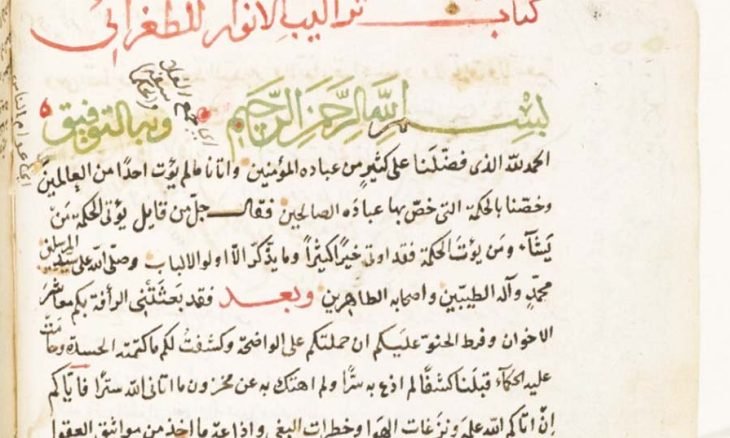 كتاب تراكيب الانوار للطغرائي
بسم الله الرحمن الرحيم وبه التوفيق
الحمد لله الذى فضّلنا على كثير من عباده المؤمنين واتانا ما لم يؤت احدًا من العالمين
وخصّنا بالحكمة التى خصّ بها عباده الصالحين فقال جلّ من قايل يؤتى الحكمة مَن
يشآء ومَن يؤت الحكمة فقد اوتى خيرًا كثيرًا وما يذّكّر الّا اولو الالباب وصلّى الله على سيّد المرسلين
محمّدٍ وآله الطيّبين واصحابه الطاهرين وبعد فقد بعثَتْنى الرأفة بكم معاشر
الاخوان وفرط الحنوّ عليكم ان حملتكم على الواضحة وكشفتُ لكم ما كتمته الحسدة
عليه الحكمآء قبلنا كشفًا لم اذع به سرًّا ولم اهتك به عن مخزون ما اتانى الله سترًا فايّاكم
اتاكم الله علمه ونزغات الهوا وخطرات البغى واذاعة ما اخذ من مواثيق العقول
اى عوام الناس